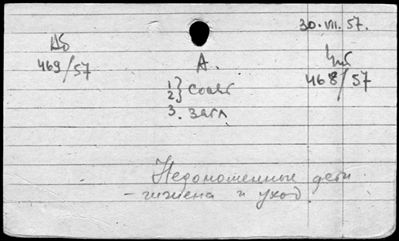 30.VII.57.
469/57
А.
468/57
1}
2} Соавт
3. Загл
Недоношенные дети
- гигиена и уход